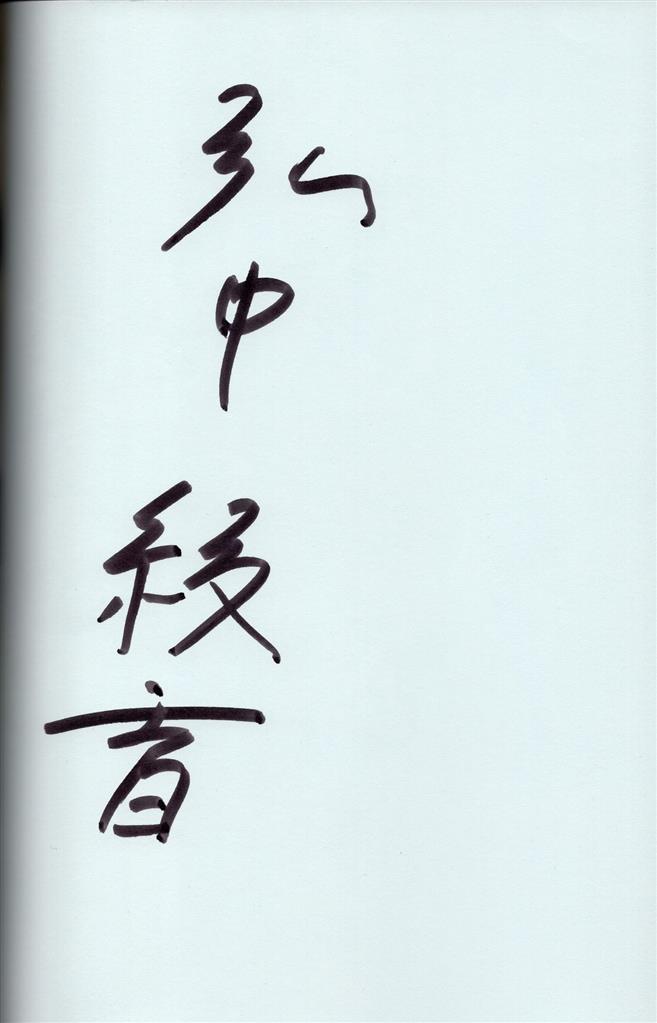 弘中綾香